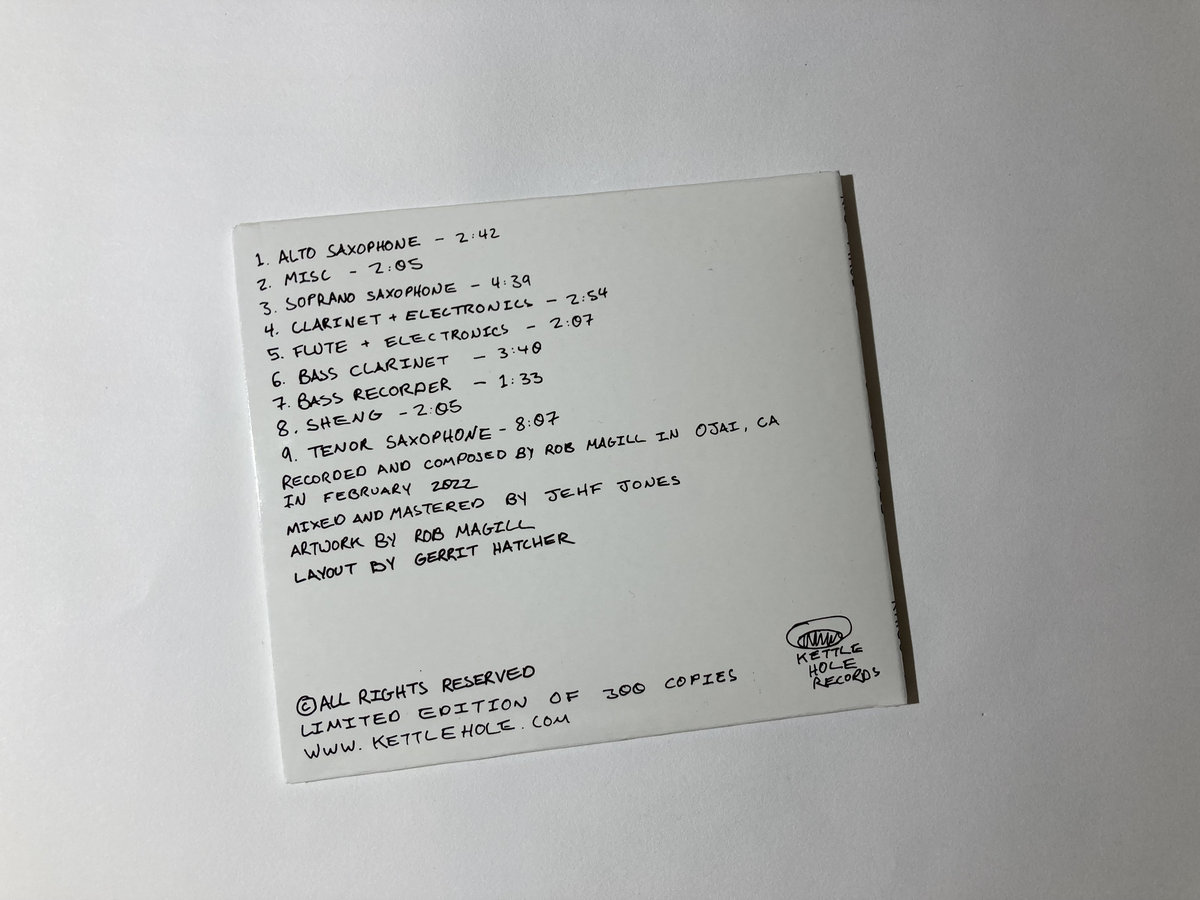 1. ALTO SAXOPHONE - 2:42
2. MISC - 2:05
3. SOPRANO SAXOPHONE - 4:39
4. CLARINET + ELECTRONICS - 2:54
5. FLUTE + ELECTRONICS - 2:07
6. BASS CLARINET - 3:40
7. BASS RECORDER - 1:33
8. SHENG - 2:05
9. TENOR SAXOPHONE - 8:07
RECORDED AND COMPOSED BY ROB MAGILL IN OJAI, CA
IN FEBRUARY 2022
MIXED AND MASTERED BY JEHF JONES
ARTWORK BY ROB MAGILL
LAYOUT BY GERRIT HATCHER
© ALL RIGHTS RESERVED
LIMITED EDITION OF 300 COPIES
WWW.KETTLEHOLE.COM
KETTLE
HOLE
RECORDS